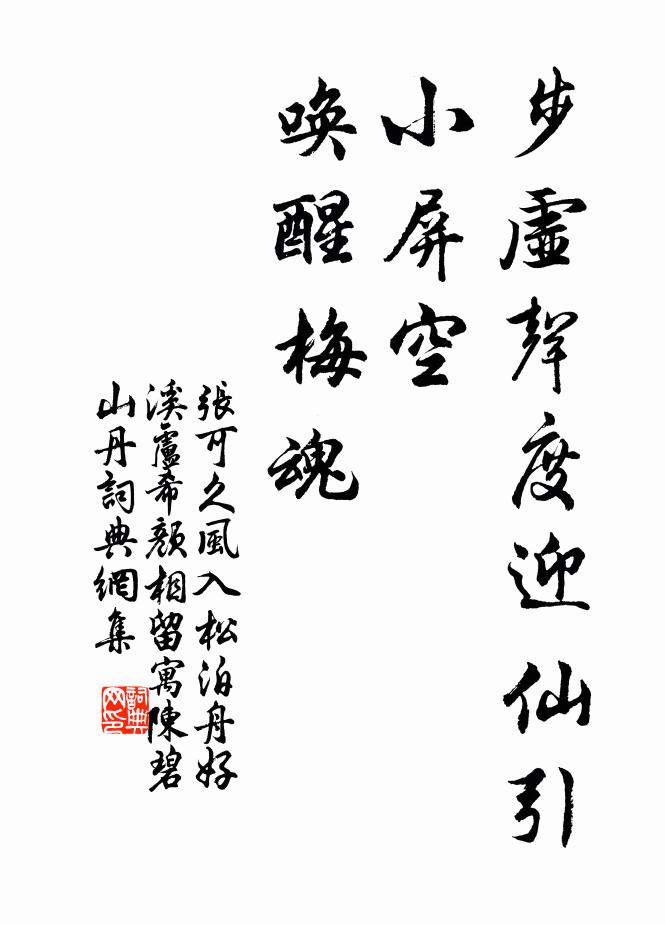 步虛聲度迎仙引
小屏空
喚醒梅魂
張可久風入松泊舟好
溪盧希顏相留寓陳碧
山丹詞典網集
詞典
网印